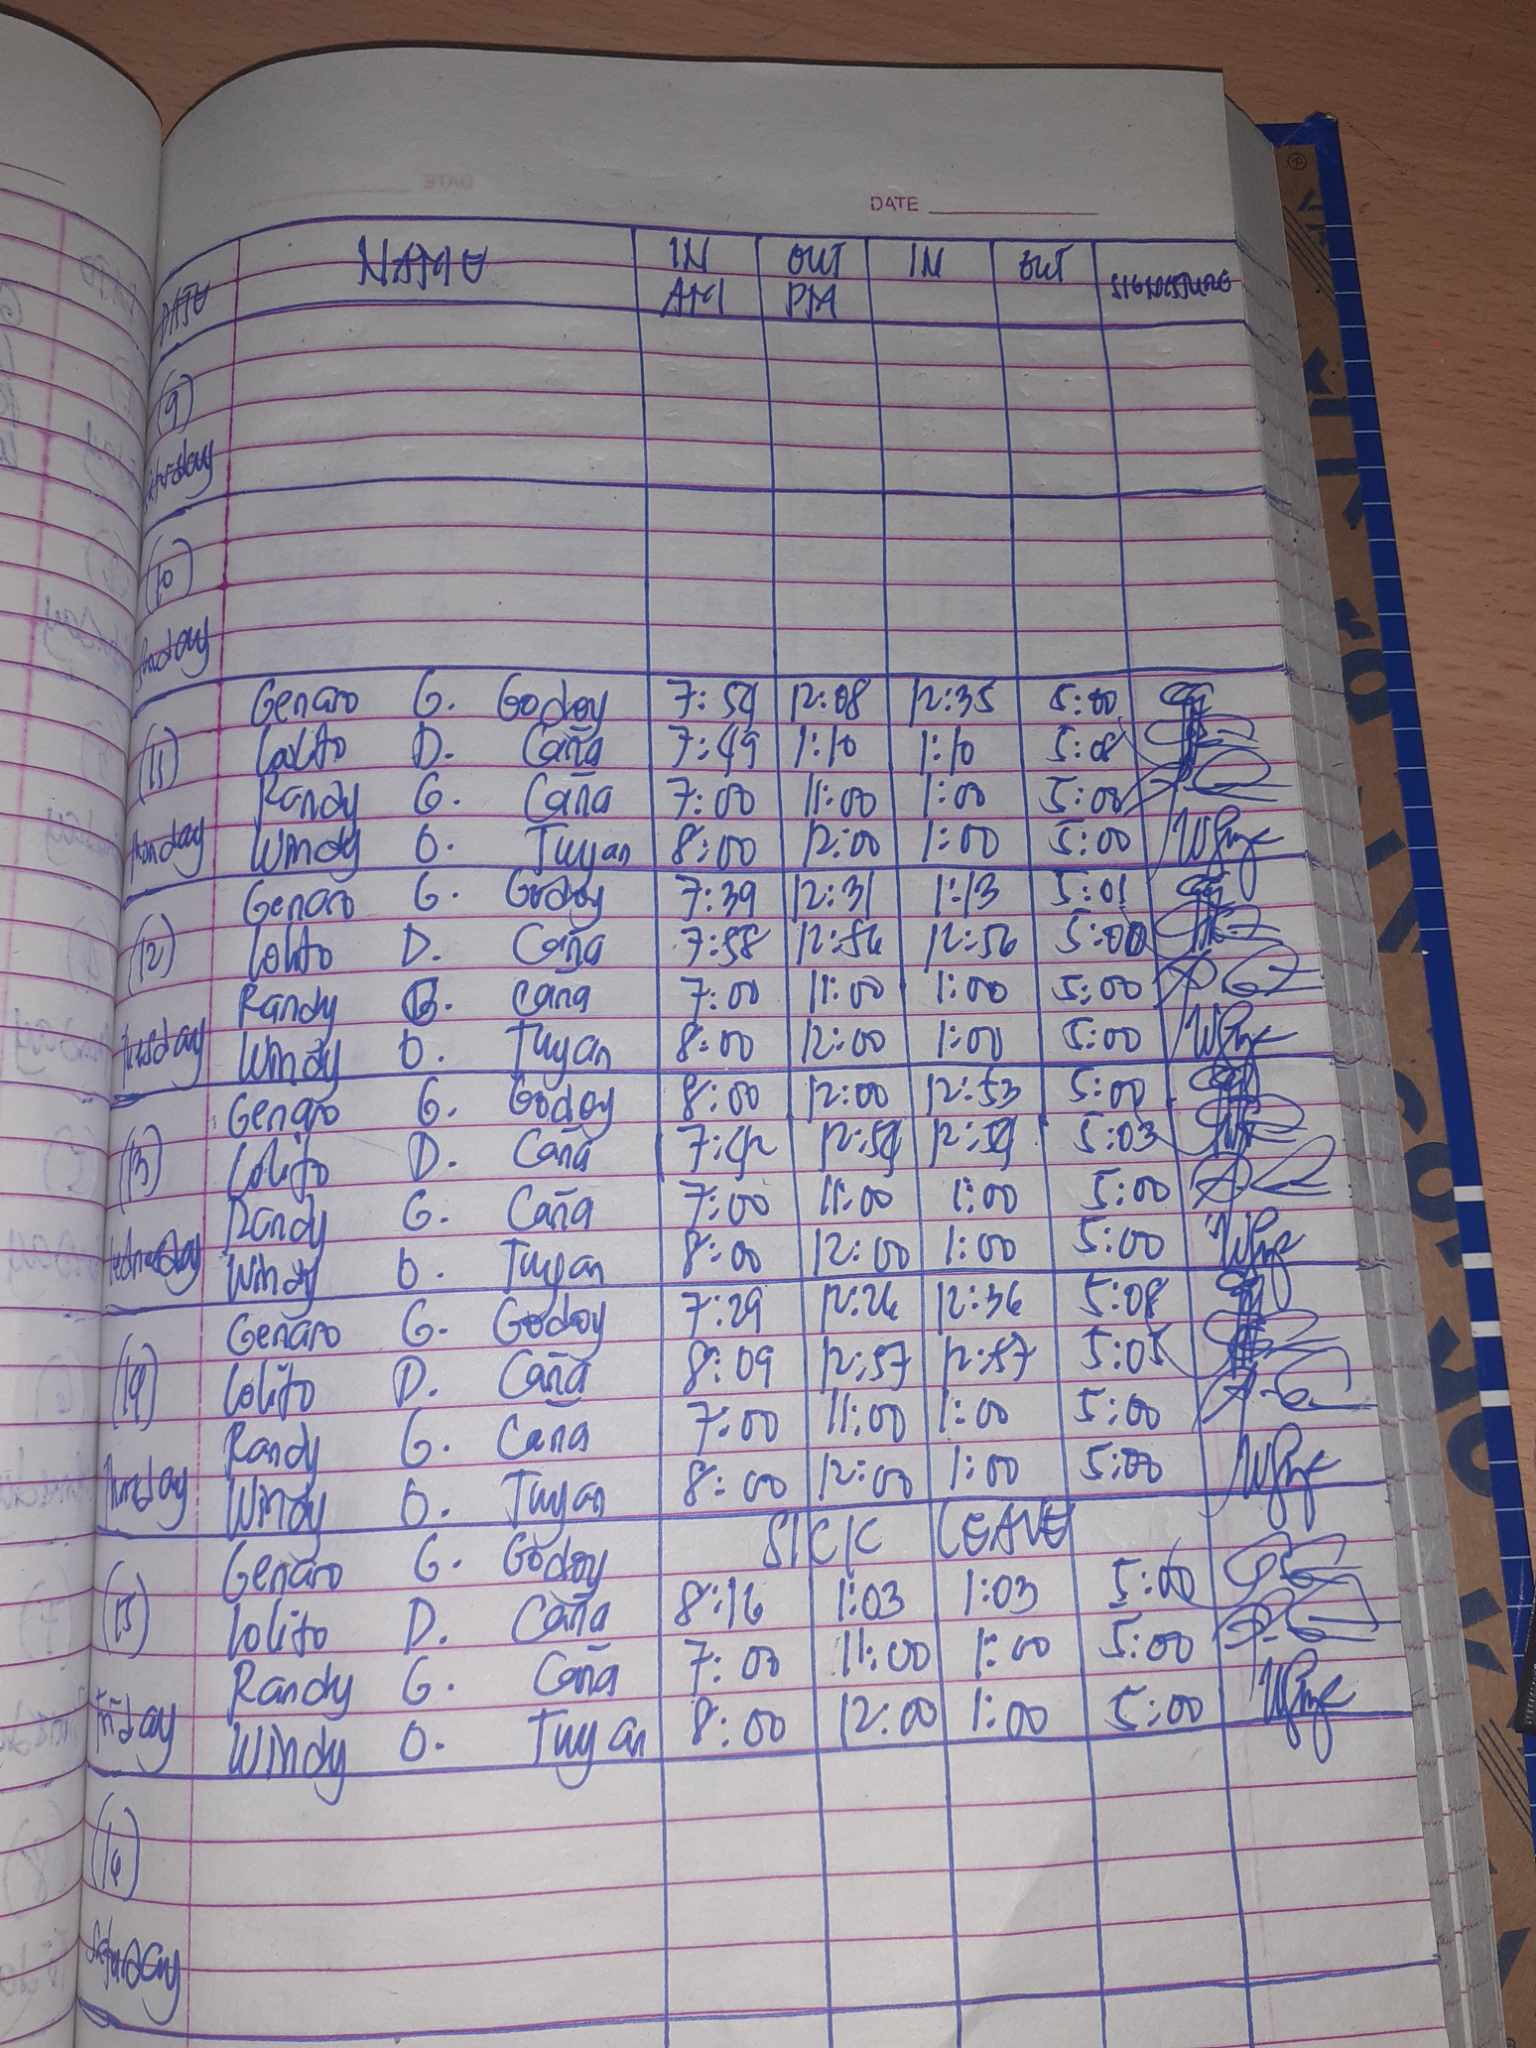 DATE
DATE NAME IN AM OUT PM IN OUT SIGNATURE
(9)
Saturday
(10)
Sunday
Genaro G. Godoy 7:54 12:08 12:35 5:00
(11) Lolito D. Caña 7:49 1:10 1:10 5:08
Randy G. Caña 7:00 11:00 1:00 5:00
Monday Windy O. Tuyan 8:00 12:00 1:00 5:00
Genaro G. Godoy 7:39 12:31 1:13 5:01
(12) Lolito D. Caña 7:58 12:56 12:56 5:00
Randy G. Caña 7:00 11:00 1:00 5:00
Tuesday Windy O. Tuyan 8:00 12:00 1:00 5:00
Genaro G. Godoy 8:00 12:00 12:53 5:00
(13) Lolito D. Caña 7:42 12:59 12:59 5:03
Randy G. Caña 7:00 11:00 1:00 5:00
Wednesday Windy O. Tuyan 8:00 12:00 1:00 5:00
Genaro G. Godoy 7:29 12:26 12:36 5:08
(14) Lolito D. Caña 8:09 12:57 12:57 5:05
Randy G. Caña 7:00 11:00 1:00 5:00
Thursday Windy O. Tuyan 8:00 12:00 1:00 5:00
Genaro G. Godoy SICK LEAVE
(15) Lolito D. Caña 8:16 1:03 1:03 5:00
Randy G. Caña 7:00 11:00 1:00 5:00
Friday Windy O. Tuyan 8:00 12:00 1:00 5:00
(16)
Saturday